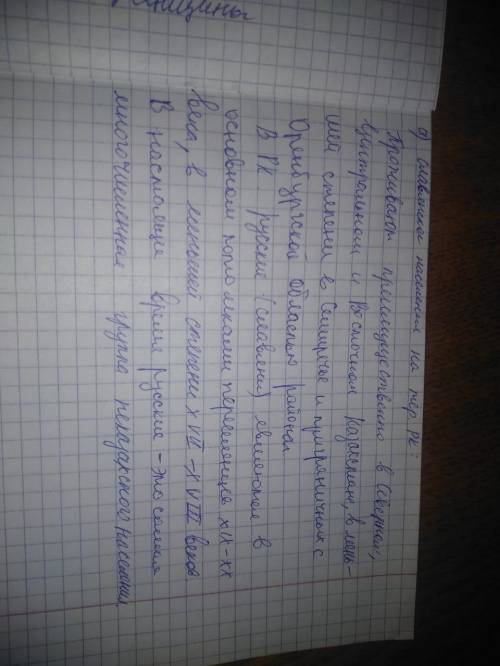 а) славянское население на тер. РК:
Проживают преимущественно в Северном,
Центральном и Восточном Казахстане, в мень-
шей степени в Семиречье и приграничных с
Оренбургской областью районах
В РК русские (славяне) являются в
основном потомками переселенцев XIX-XX
века, в меньшей степени XVII-XVIII веков
В настоящее время русские - это самая
многочисленная группа неказахского населения